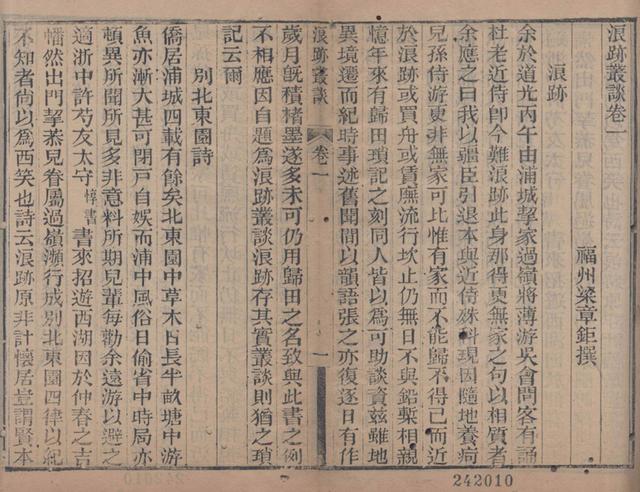 浪跡叢談卷一
福州梁章鉅撰
浪跡
余於道光丙午由浦城挈家過嶺將薄游吳會問客有誦
杜老近侍卽今難浪跡此身那得更無家之句以相質者
余應之曰我以疆臣引退本與近侍殊科現因隨地養疴
兒孫侍游更非無家可比惟有家而不能歸不得已而近
於浪跡或買舟或賃廡流行坎止仍無日不與鉛槧相親
憶年來有歸田瑣記之刻同人皆以爲可助談資茲雖地
異境遷而紀時事述舊聞間以韻語張之亦復逐日有作
浪跡叢談
卷一
一
歲月旣積楮墨遂多未可仍用歸田之名致與此書之例
不相應因自題爲浪跡叢談浪跡存其實叢談則猶之瑣
記云爾
別北東園詩
僑居浦城四載有餘矣北東園中草木日長半畝塘中游
魚亦漸大甚可閉戸自娱而浦中風俗日偷省中時局亦
頓異所聞所見多非意料所期兒輩每勸余遠游以避之
適浙中許芍友太守惇書書來招遊西湖因於仲春之吉
幡然出門挈恭兒眷屬過嶺瀕行成別北東園四律以紀
不知者尙以爲西笑也詩云浪跡原非計懷居豈謂賢本
242010